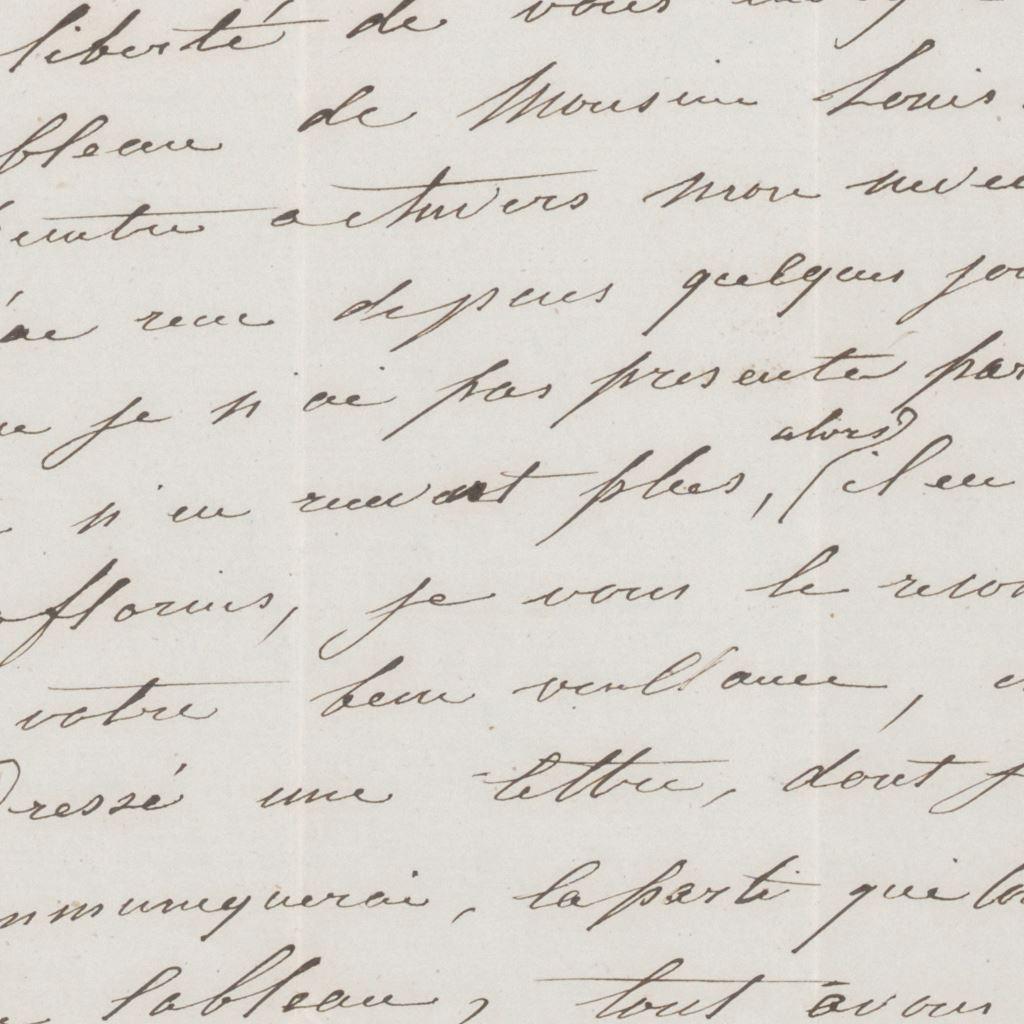 liberté de vous
bleau de Monsieur Louis
peintre actuvers mon nivea
j'ai recu depuis quelques jou
que je n'ai pas presenté par
n'en veut plus, (alors) il en
florins, je vous le recom
votre bien veillance,
dressé une lettre, dont j
mmuniquerai, la parti qui
tableau, tout avour